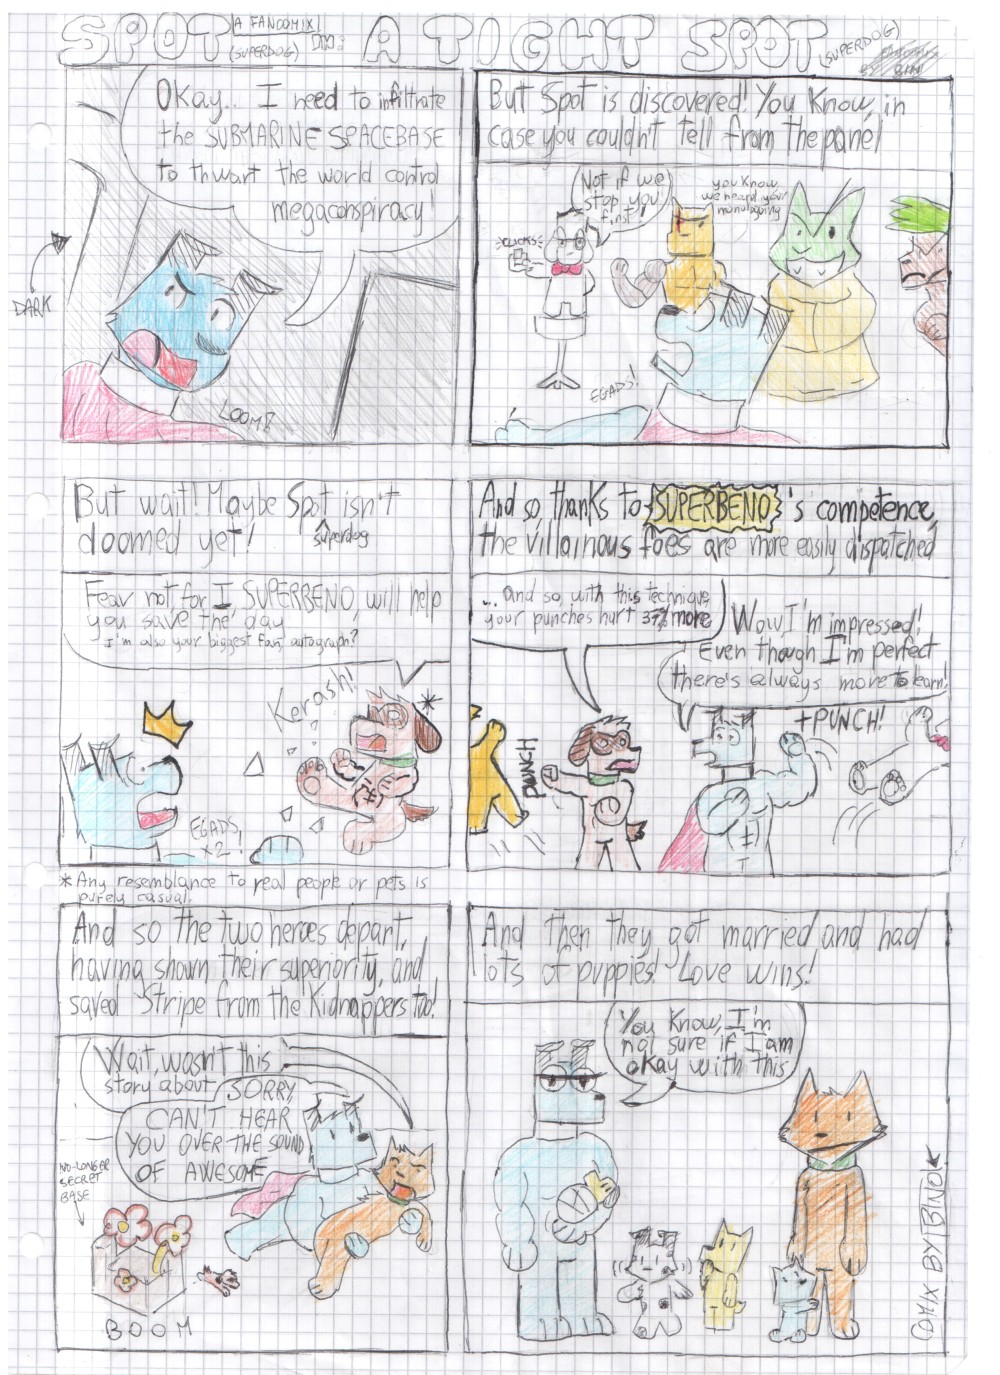 SPOT
(SUPERDOG)
A FANCOMIX
IN:
A TIGHT SPOT
(SUPERDOG)
Okay.. I need to infiltrate
the SUBMARINE SPACEBASE
to thwart the world control
megaconspiracy!
DARK
LOOM!
But Spot is discovered! You Know, in
case you couldn't tell from the panel
Not if we
stop you
first!
you Know,
we heard your
monologuing
*CLICKS*
EGADS!
But wait! Maybe Spot isn't
doomed yet!
superdog
Fear not for I, SUPERBENO, will help
you save the day
I'm also your biggest fan, autograph?
Kerash!
*
EGADS,
x2!
* Any resemblance to real people or pets is
purely casual.
And so, thanks to SUPERBENO's competence,
the villainous foes are more easily dispatched
... and so, with this technique,
your punches hurt 37% more
Wow I'm impressed!
Even though I'm perfect
there's always more to learn!
PUNCH
+PUNCH!
And so the two heroes depart,
having shown their superiority, and
saved Stripe from the Kidnappers too!
Wait, wasn't this
story about
SORRY,
CAN'T HEAR
YOU OVER THE SOUND
OF AWESOME
NO-LONGER
SECRET
BASE
BOOM
And then they got married and had
lots of puppies! Love wins!
You Know, I'm
not sure if I am
okay with this
COMIX BY BINO